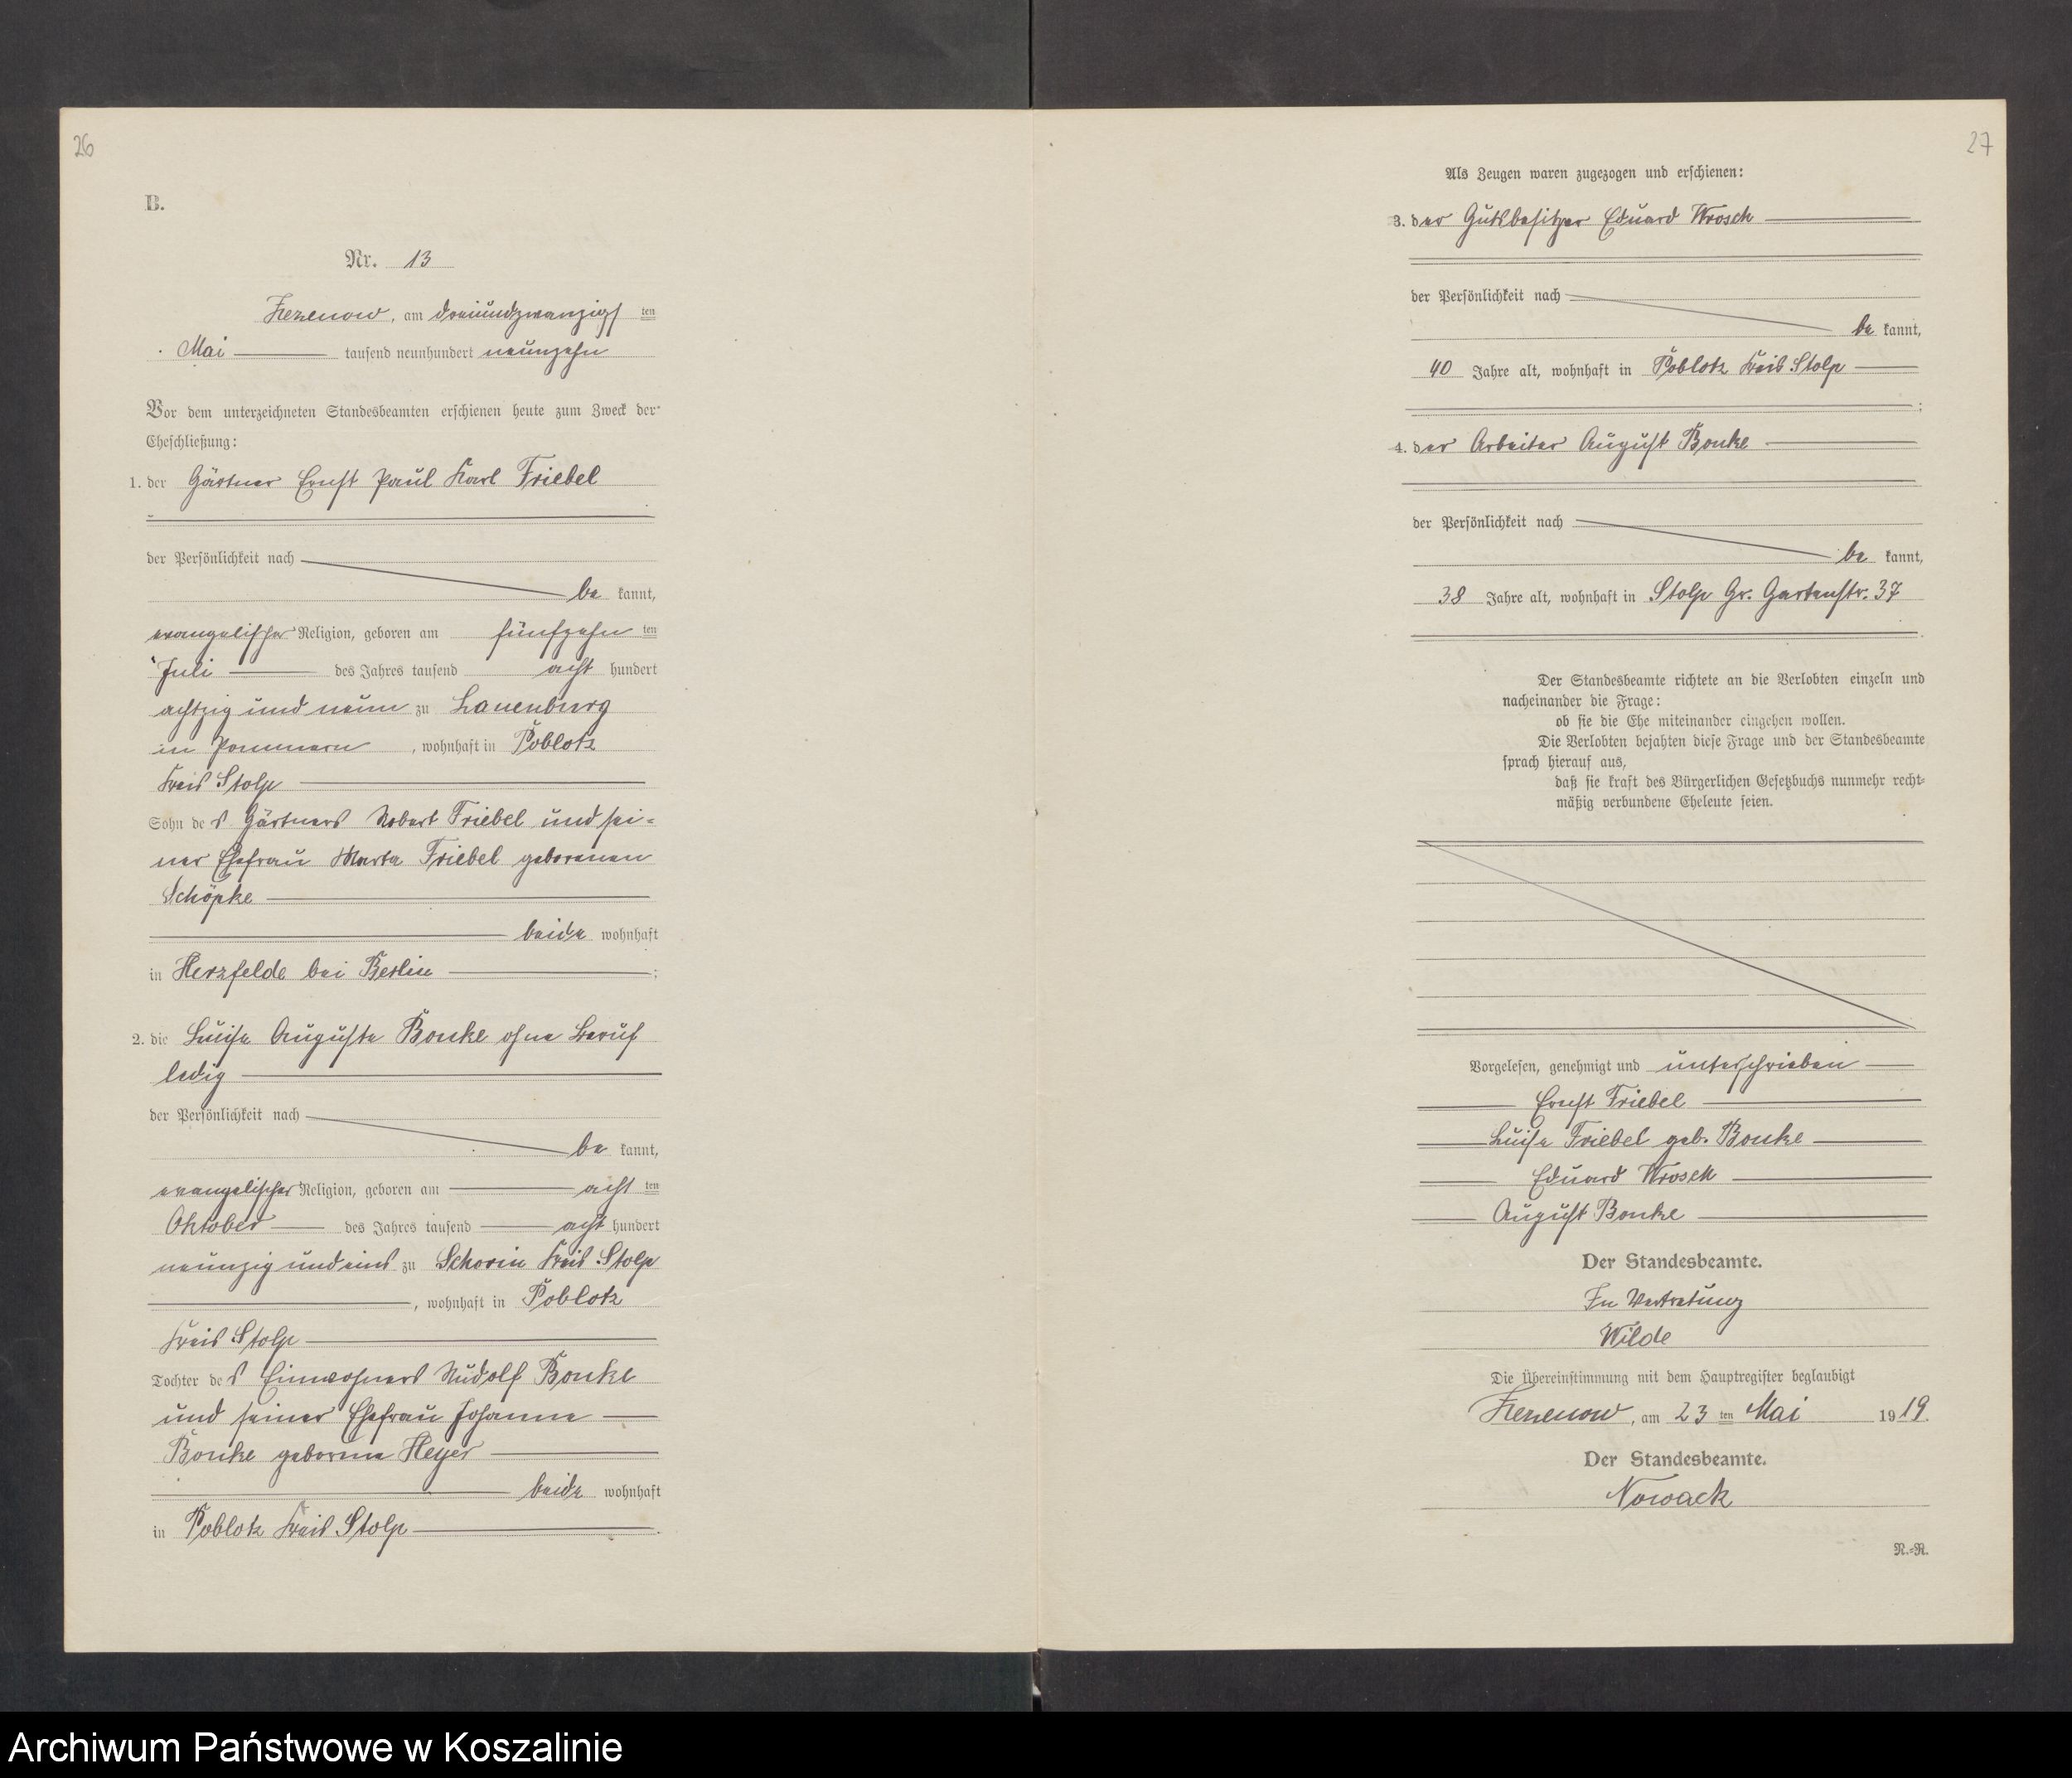 26
B.
Nr. 13
Zezenow, am dreiundzwanzigsten
Mai tausend neunhundert neunzehn
Vor dem unterzeichneten Standesbeamten erschienen heute zum Zweck der
Eheschließung:
1. der Gärtner Ernst Paul Karl Friebel
der Persönlichkeit nach
be kannt,
evangelischer Religion, geboren am fünfzehn ten
Juli des Jahres tausend acht hundert
achtzig und neun zu Lauenburg
in Pommern, wohnhaft in Poblotz
Kreis Stolp
Sohn des Gärtners Robert Friebel und sei-
ner Ehefrau Marta Friebel geborenen
Schöpke
beide wohnhaft
in Herzfelde bei Berlin;
2. die Luise Auguste Bonke ohne Beruf
ledig
der Persönlichkeit nach
be kannt,
evangelischer Religion, geboren am acht ten
Oktober des Jahres tausend acht hundert
neunzig und eins zu Schorin Kreis Stolp
, wohnhaft in Poblotz
Kreis Stolp
Tochter des Einwohners Rudolf Bonke
und seiner Ehefrau Johanne
Bonke geborene Heyer
beide wohnhaft
in Poblotz Kreis Stolp.
27
Als Zeugen waren zugezogen und erschienen:
3. der Gutsbesitzer Eduard Wrosch
der Persönlichkeit nach
be kannt,
40 Jahre alt, wohnhaft in Poblotz Kreis Stolp
;
4. der Arbeiter August Bonke
der Persönlichkeit nach
be kannt,
38 Jahre alt, wohnhaft in Stolp Gr. Gartenstr. 37
.
Der Standesbeamte richtete an die Verlobten einzeln und
nacheinander die Frage:
ob sie die Ehe miteinander eingehen wollen.
Die Verlobten bejahten diese Frage und der Standesbeamte
sprach hierauf aus,
daß sie kraft des Bürgerlichen Gesetzbuchs nunmehr recht-
mäßig verbundene Eheleute seien.
Vorgelesen, genehmigt und unterschrieben
Ernst Friebel
Luise Friebel geb. Bonke
Eduard Wrosch
August Bonke
Der Standesbeamte.
In Vertretung
Wilde
Die Übereinstimmung mit dem Hauptregister beglaubigt
Zezenow, am 23 ten Mai 1919.
Der Standesbeamte.
Nowack
R.-R.
Archiwum Państwowe w Koszalinie